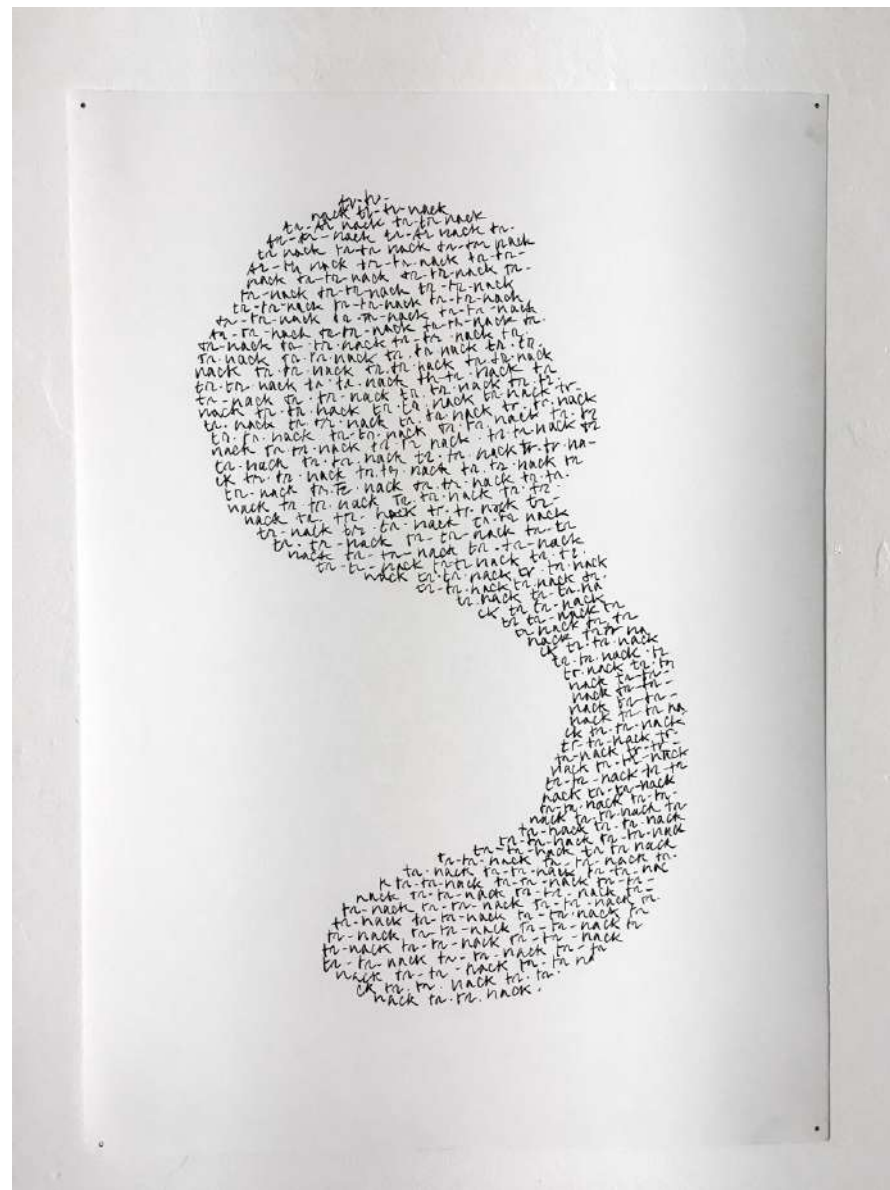 tr-tr-
nack tr-tr-nack
tr-tr nack tr-tr nack
tr-tr-nack tr-tr nack tr-
tr nack tr-tr nack tr-tr nack
tr-tr nack tr-tr-nack tr-tr-
nack tr-tr-nack tr-tr-nack tr-
tr-nack tr-tr-nack tr-tr-nack
tr-tr-nack tr-tr-nack tr-tr-nack
tr-tr-nack tr-tr-nack tr-tr-nack
tr-tr-nack tr-tr-nack tr-tr-nack tr-
tr-nack tr-tr-nack tr-tr-nack tr-
tr-nack tr-tr-nack tr-tr nack tr-tr-
nack tr-tr-nack tr-tr-nack tr-tr nack
tr-tr nack tr-tr-nack tr-tr-nack tr
tr-nack tr-tr-nack tr-tr-nack tr-tr
nack tr-tr-nack tr tr nack tr-nack tr-
tr-nack tr-tr-nack tr-tr-nack tr-tr-nack
tr-tr-nack tr-tr-nack tr-tr-nack tr-tr
nack tr-tr-nack tr-tr nack tr-tr-nack tr
tr-nack tr-tr-nack tr-tr-nack tr-tr na-
ck tr-tr-nack tr-tr-nack tr-tr-nack tr
tr-nack tr-tr-nack tr-tr-nack tr-tr-
nack tr tr-nack tr-tr-nack tr-tr-
nack tr tr-nack tr-tr-nack tr-
tr-nack tr-tr-nack tr-tr nack
tr-tr-nack tr-tr-nack tr-tr
nack tr-tr-nack tr-tr-nack
tr-tr-nack tr-tr nack tr-tr-
nack tr-tr-nack tr-tr nack
tr-tr-nack tr-nack tr-
tr-nack tr-tr-na
ck tr tr-nack
tr tr-nack tr
tr nack tr tr
nack tr tr na
ck tr-tr-nack
tr-tr-nack tr
tr-nack tr-tr
nack tr-tr-
nack tr-tr-
nack tr-tr-
nack tr-tr na
ck tr-tr-nack
tr-tr-nack tr-
tr-nack tr-tr-
nack tr-tr-nack
tr-tr-nack tr-tr
nack tr-tr-nack
tr-tr-nack tr-tr-
nack tr-tr-nack tr
tr-nack tr-tr-nack
tr-tr-nack tr-tr-nack
tr-tr-nack tr tr nack
tr-tr-nack tr-tr-nack tr-
tr-nack tr-tr-nack tr-tr-nac
k tr-tr-nack tr-tr-nack tr-tr-
nack tr-tr-nack tr-tr-nack tr-
tr-nack tr-tr-nack tr-tr-nack tr-
tr-nack tr-tr-nack tr-tr-nack tr
tr-nack tr-tr-nack tr-tr-nack tr
tr-nack tr-tr-nack tr-tr-nack
tr-tr-nack tr-tr-nack tr-tr
nack tr-tr-nack tr-tr na
ck tr-tr-nack tr-tr-
nack tr-tr-nack.